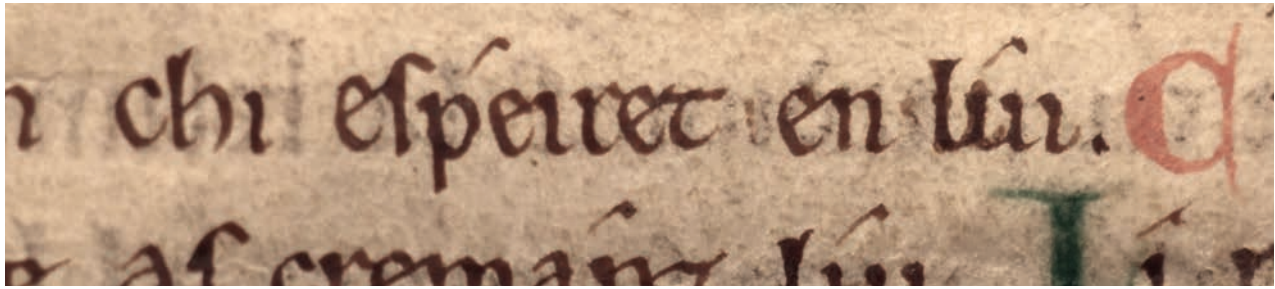 chi espeiret en lui. C
as cremanz lui I